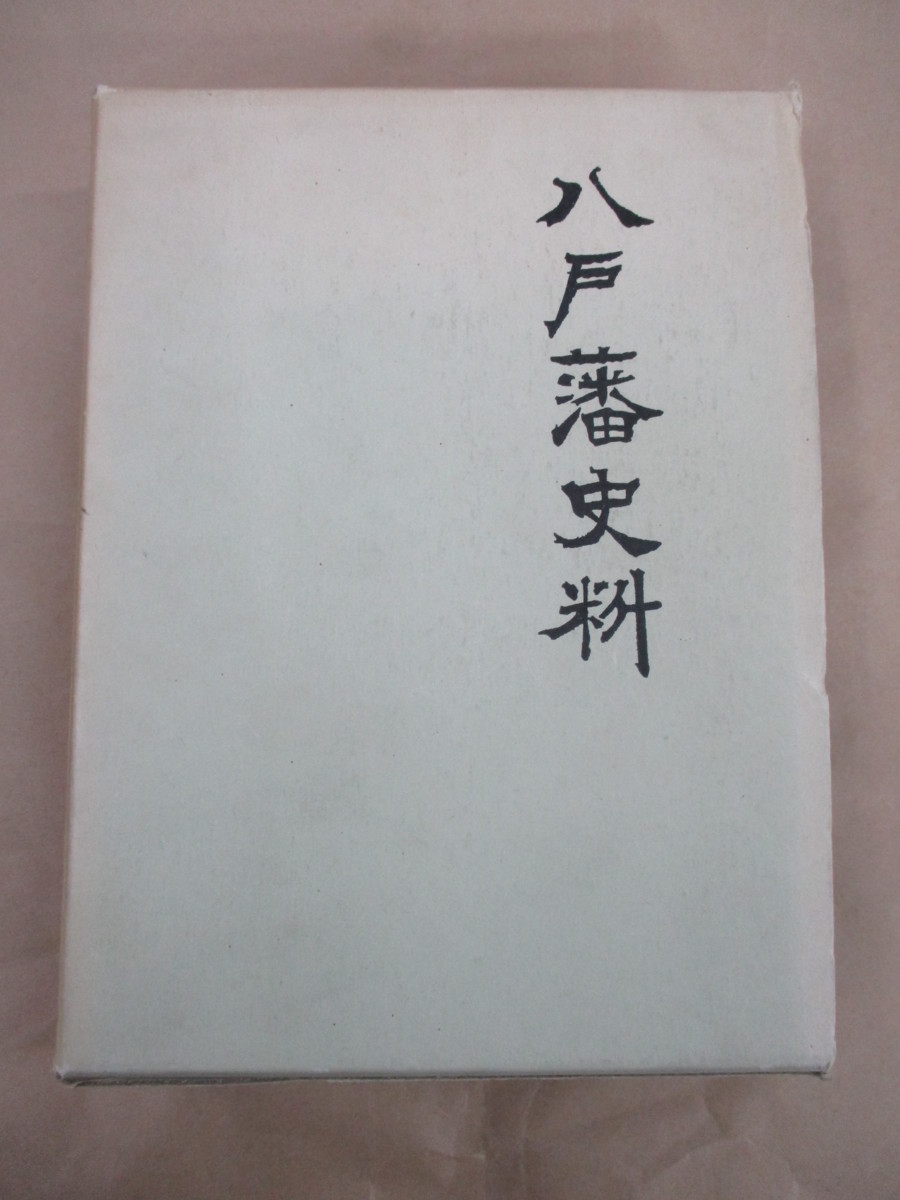 八戸藩史料